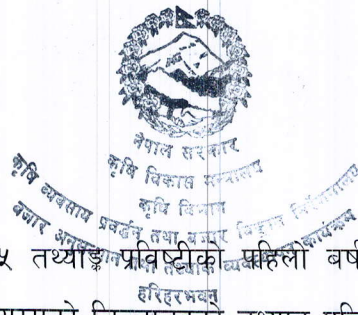 नेपाल सरकार
कृषि विकास मन्त्रालय
कृषि विभाग
कृषि व्यवसाय प्रवर्द्धन तथा बजार विकास निर्देशनालय
बजार अनुसन्धान तथा तथ्यांक व्यवस्थापन कार्यक्रम
हरिहरभवन
५ तथ्याङ्क प्रविष्टीको पहिलो बर्ष